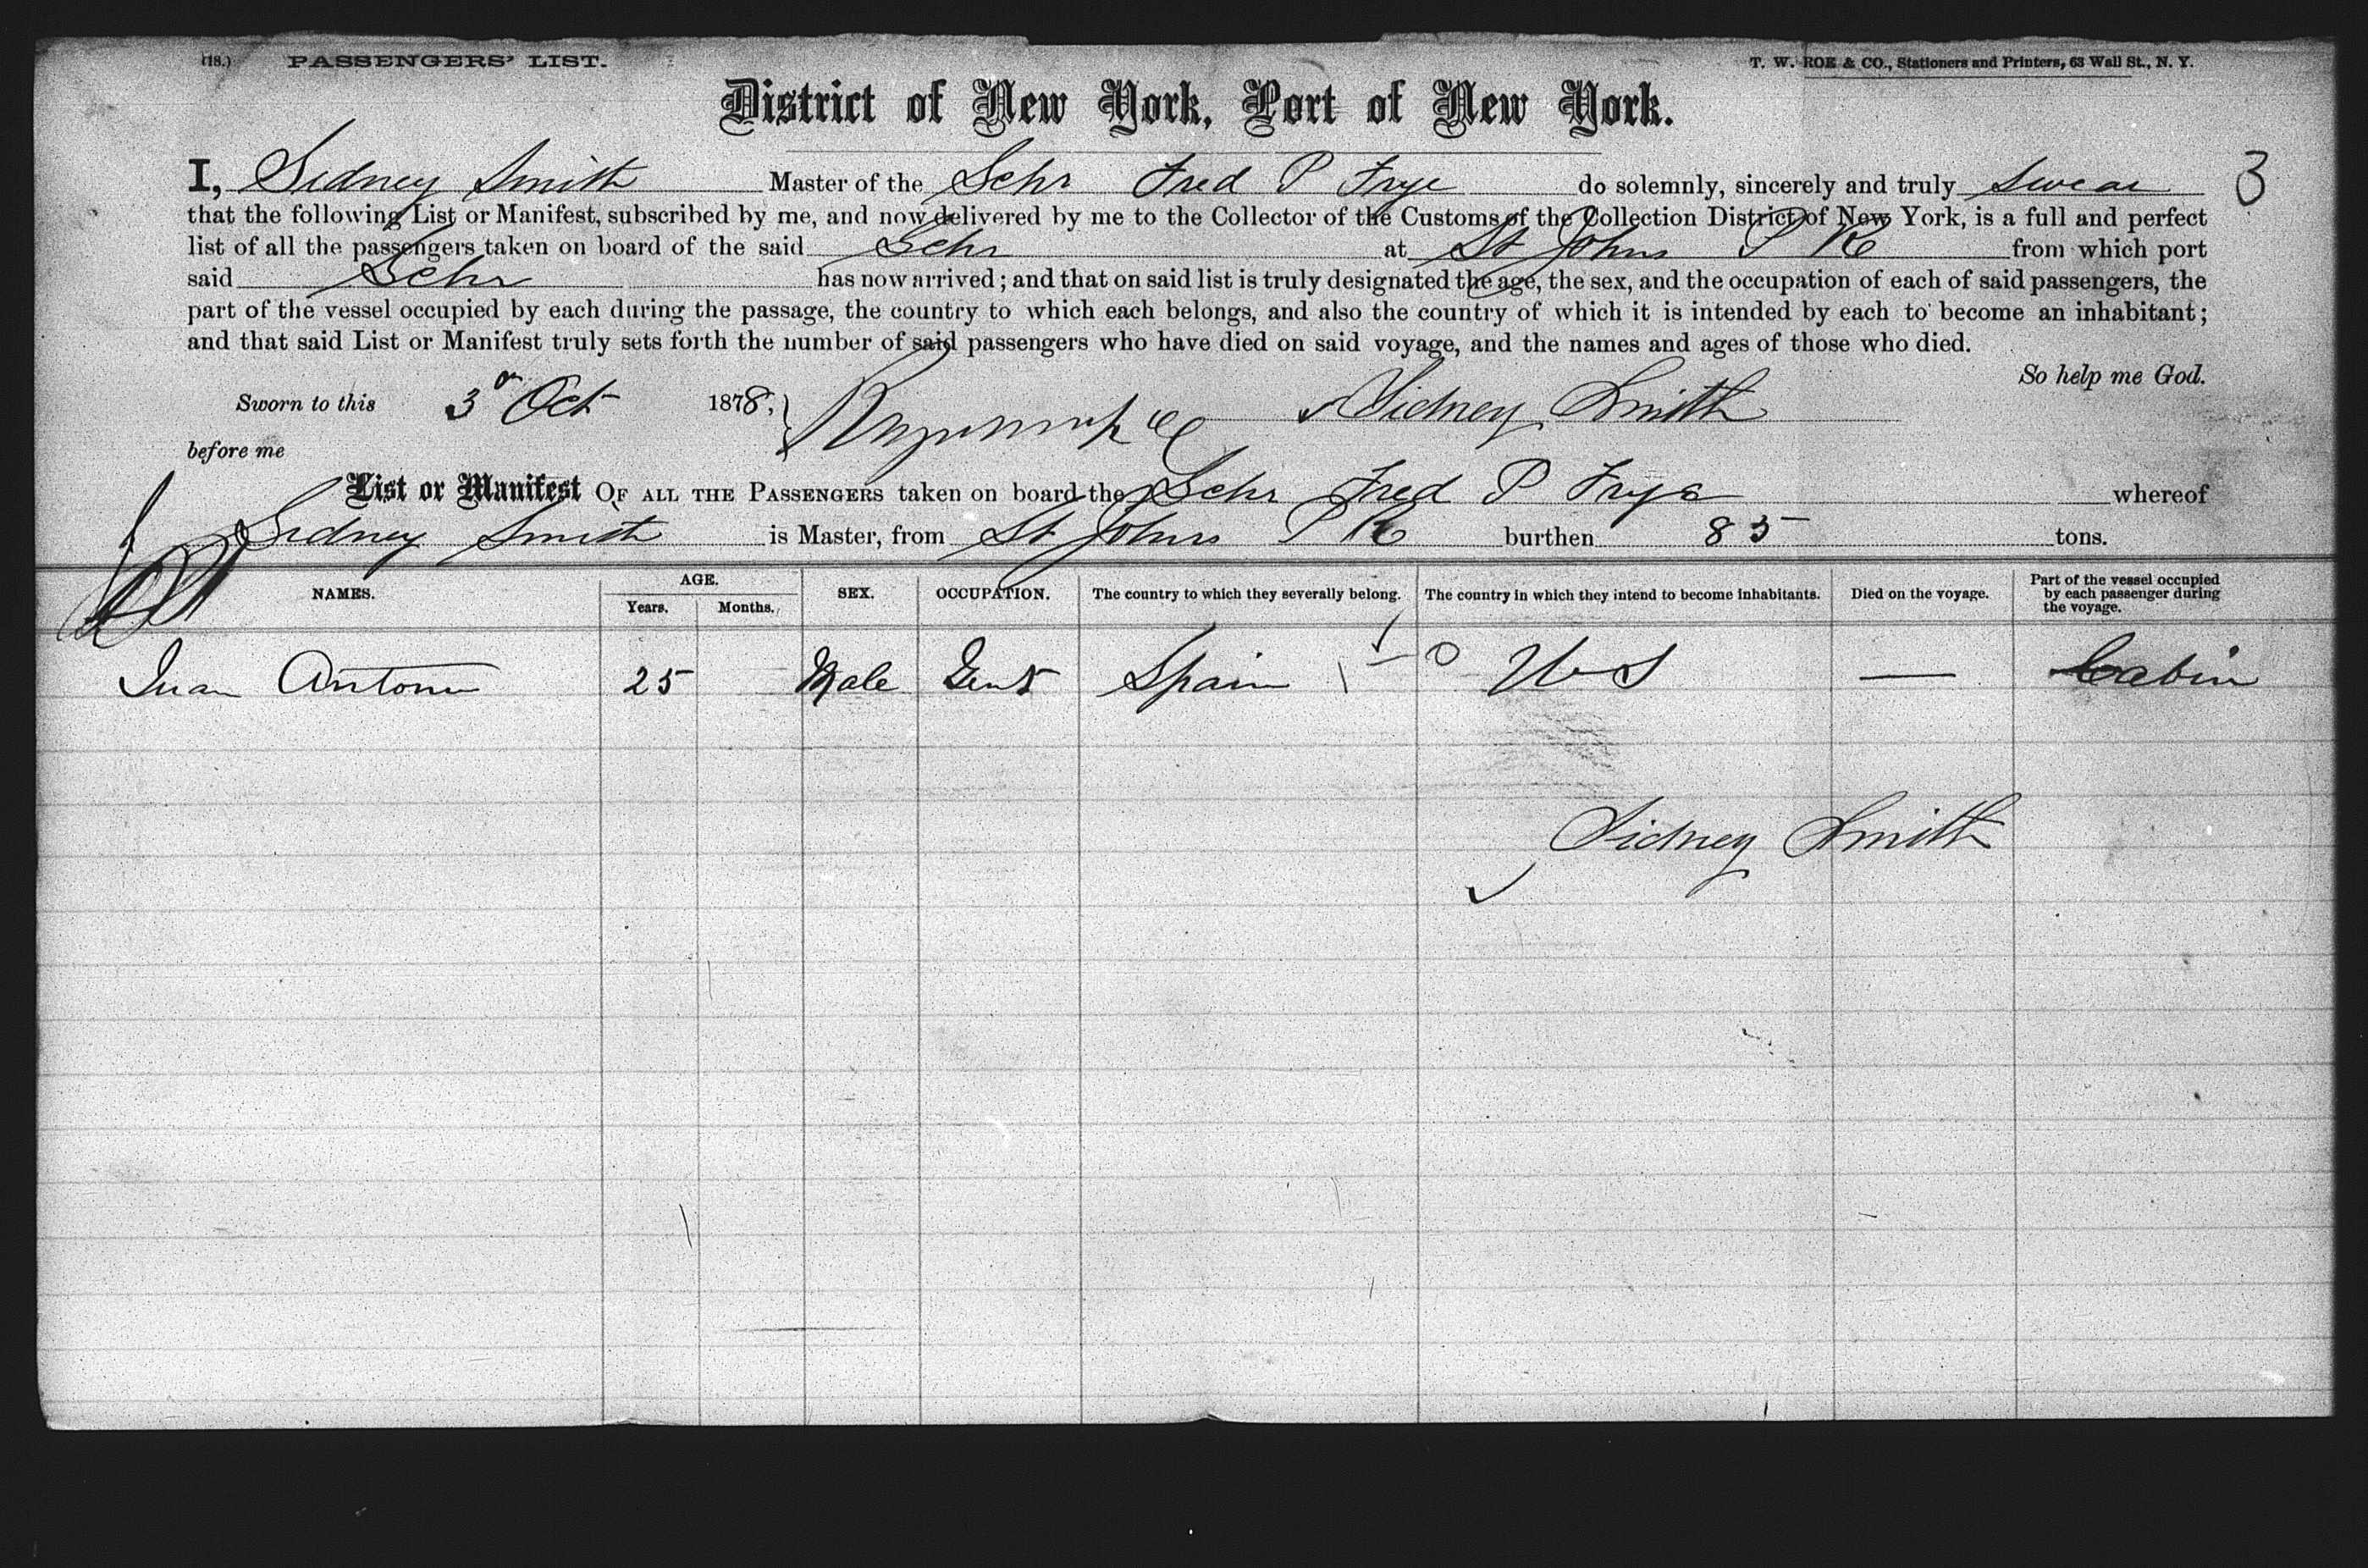 (18.) PASSENGERS' LIST. T. W. ROE & CO., Stationers and Printers, 63 Wall St., N. Y.
District of New York, Port of New York.
I, Sidney Smith Master of the Schr Fred P Frye do solemnly, sincerely and truly swear 3
that the following List or Manifest, subscribed by me, and now delivered by me to the Collector of the Customs of the Collection District of New York, is a full and perfect
list of all the passengers taken on board of the said Schr at St Johns P R from which port
said Schr has now arrived; and that on said list is truly designated the age, the sex, and the occupation of each of said passengers, the
part of the vessel occupied by each during the passage, the country to which each belongs, and also the country of which it is intended by each to become an inhabitant;
and that said List or Manifest truly sets forth the number of said passengers who have died on said voyage, and the names and ages of those who died.
So help me God.
Sworn to this 3 Oct 1878, Sidney Smith
before me
List or Manifest OF ALL THE PASSENGERS taken on board the Schr Fred P Frye whereof
Sidney Smith is Master, from St Johns P R burthen 85 tons.
NAMES. AGE. Years. Months. SEX. OCCUPATION. The country to which they severally belong. The country in which they intend to become inhabitants. Died on the voyage. Part of the vessel occupied by each passenger during the voyage.
Juan Antonio 25 Male Gent Spain U S — Cabin
Sidney Smith